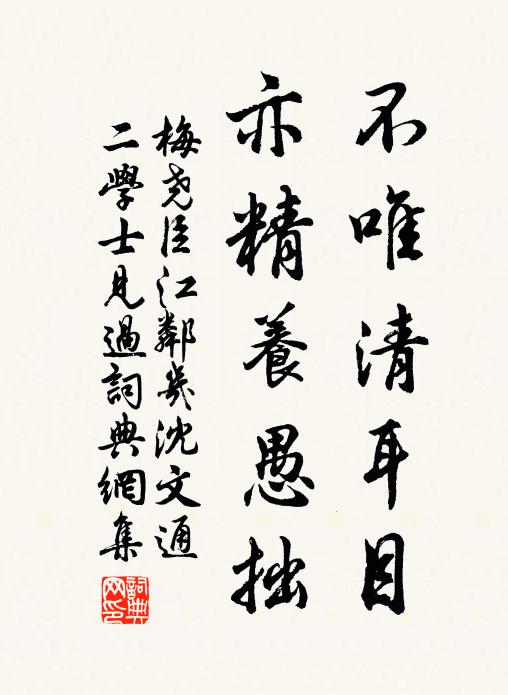 不唯清耳目
亦精養愚拙
梅堯臣江鄰幾沈文通
二學士見過詞典網集
詞典網印